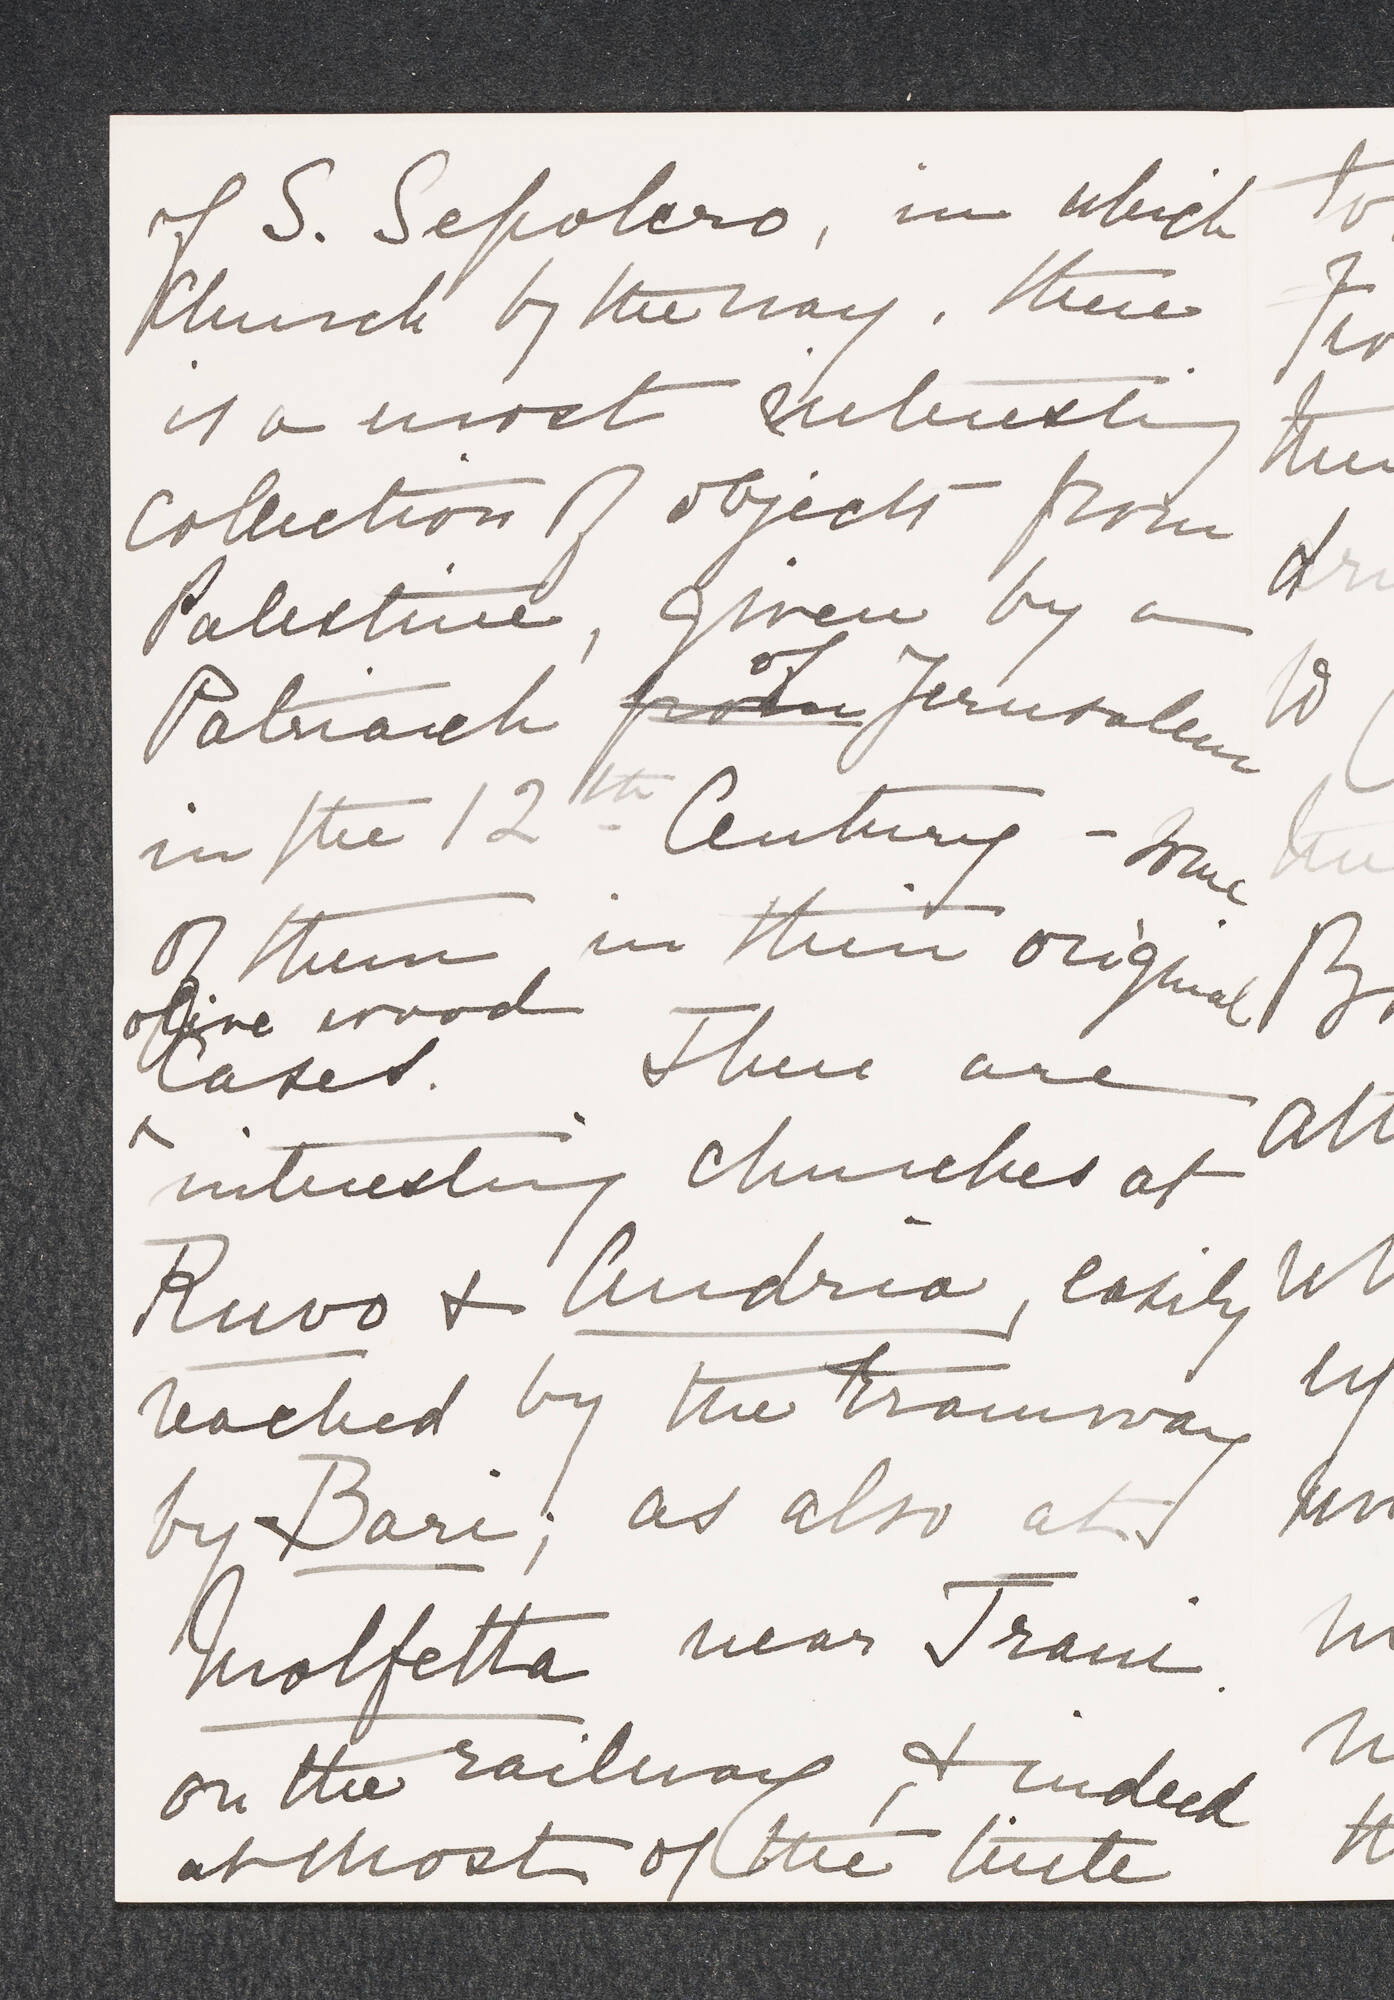 of S. Sepolcro, in which
Church by the way, there
is a most interesting
collection of objects from
Palestine, given by a
Patriarch from of Jerusalem
in the 12th Century - some
of them in their original
olive wood
cases. There are
interesting churches at
Ruvo & Andria, easily
reached by the tramway
by Bari; as also at
Molfetta near Trani
on the railway, & indeed
at most of the little